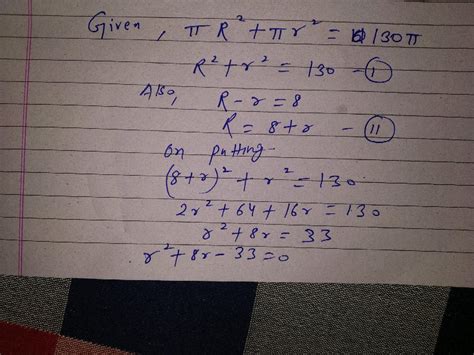 Given, πR² + πr² = 130π
R² + r² = 130 - I
Also, R - r = 8
R = 8 + r - II
On putting -
(8+r)² + r² = 130
2r² + 64 + 16r = 130
r² + 8r = 33
r² + 8r - 33 = 0